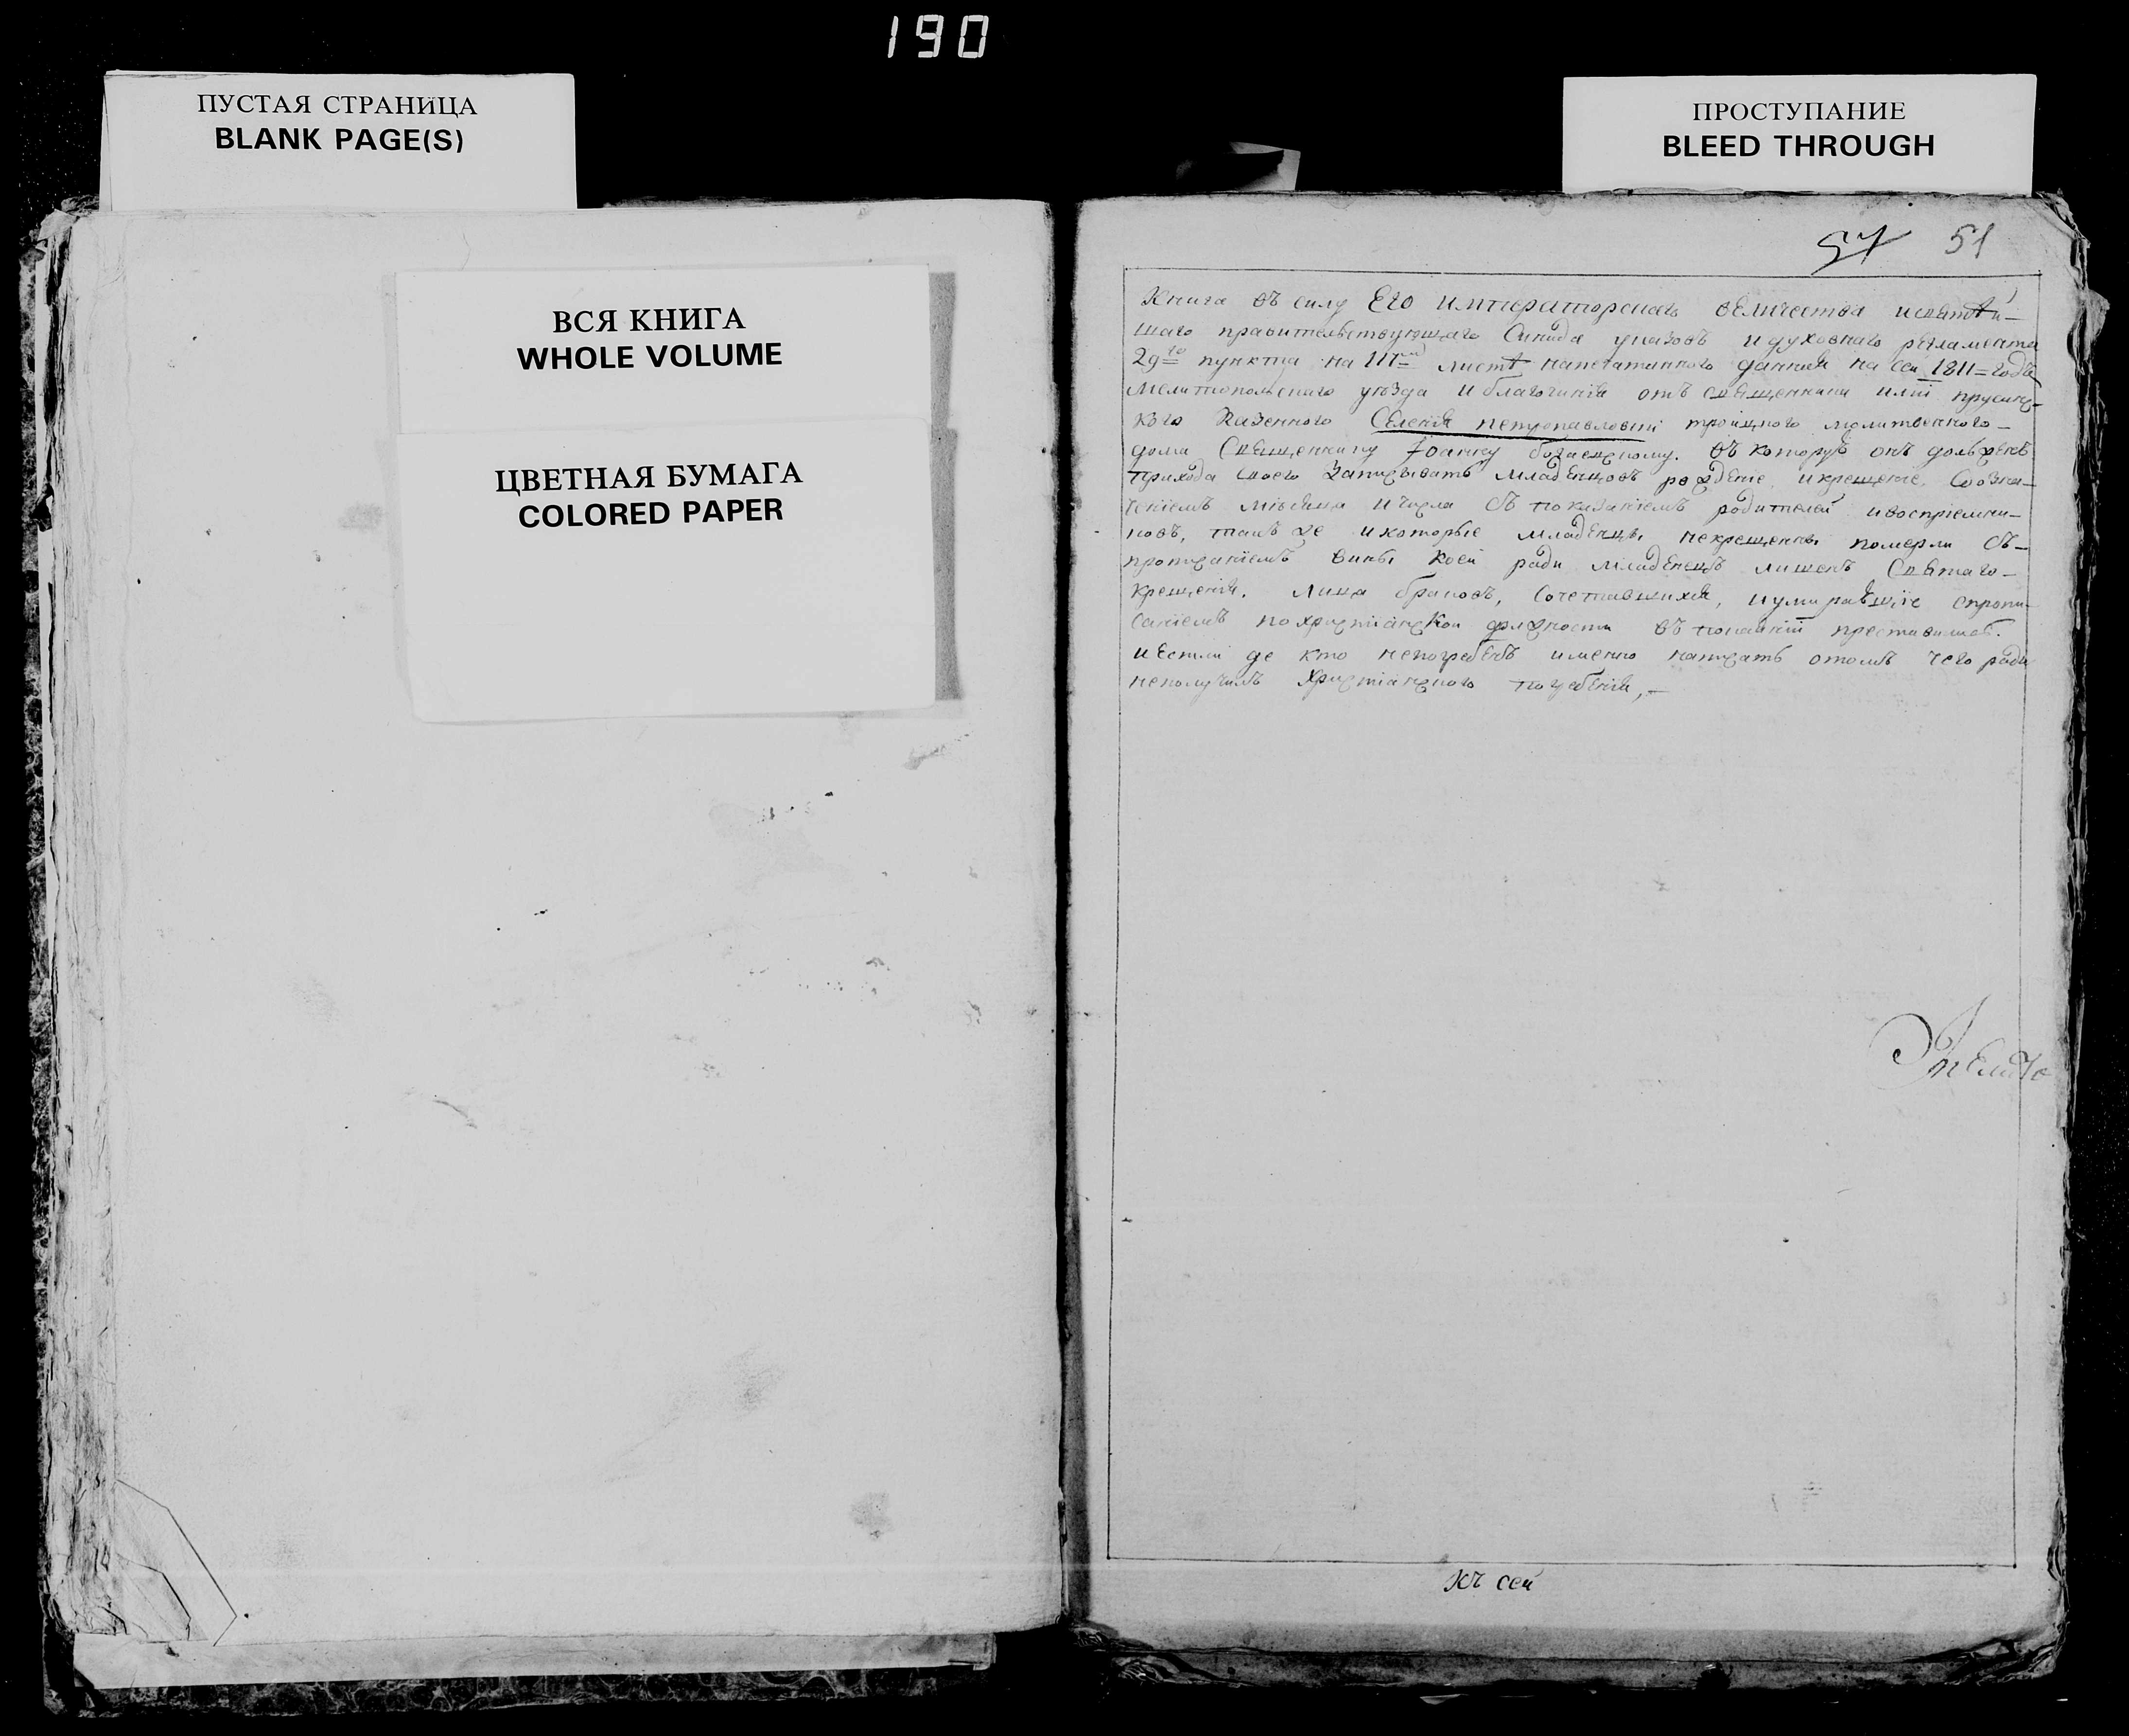 190
ПУСТАЯ СТРАНИЦА
BLANK PAGE(S)
ПРОСТУПАНИЕ
BLEED THROUGH
ВСЯ КНИГА
WHOLE VOLUME
ЦВЕТНАЯ БУМАГА
COLORED PAPER
57 51
Книга въ силу Его императорскаго величества и святѣи-
шаго правительствующаго Синода указовъ и духовнаго регламента
29го пункта на 111м листѣ напечатанного данная на сей 1811=годъ
Мелитопольскаго уѣзда и благочинія отъ священника
казенного Селенія петропавловки троицкого молитвенного-
дома Священнику Іоанну въ которую онъ долженъ
прихода своего записывать младенцовъ рождение, и крещение, Со озна-
ченіемъ мѣсяца и числа съ показаніемъ родителей и воспріемни-
ковъ, такъ же и которые младенцы некрещенны померли съ-
прописаніемъ вины коей ради младенецъ лишенъ Святаго-
крещенія. Лица браковъ, Сочетавшихся, и умиравшие спропи-
саніемъ по христіанской должности въ покаяніи преставился.
и Естли де кто непогребенъ именно написать отомъ чего ради
неполучилъ христіанского погребенія,-
Къ сей